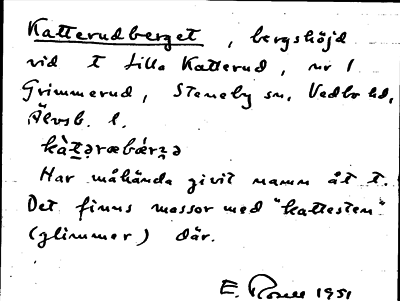 Katterudberget, bergshöjd
vid t Lilla Katterud, nr 1
Grimmerud, Steneby sn, Vedbo hd,
Älvsb. l.
kàt̠əræbǽrn̠ə
Har måhända givit namn åt t.
Det finns massor med "kattesten"
(glimmer) där.
E. 1951